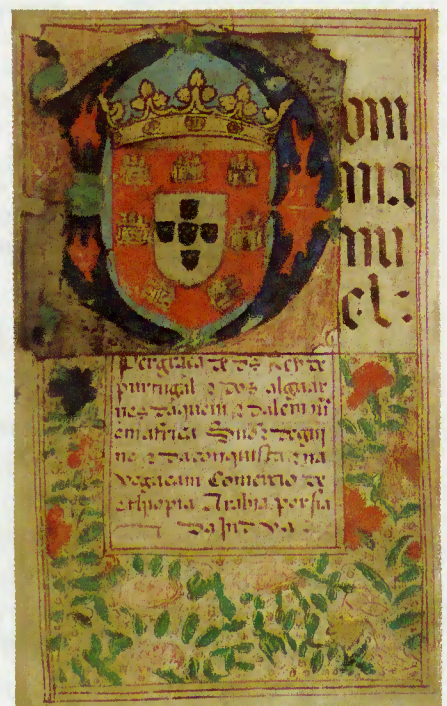 Dom
ma
nu
el:
Per graça de ds Rey de
purtugal e dos algaar
ves daquem e dalem mr̃
em africa Snõr de gui
ne e da conquista e na
vegacam Comercio de
ethiopia Arabia persia
da Jndya